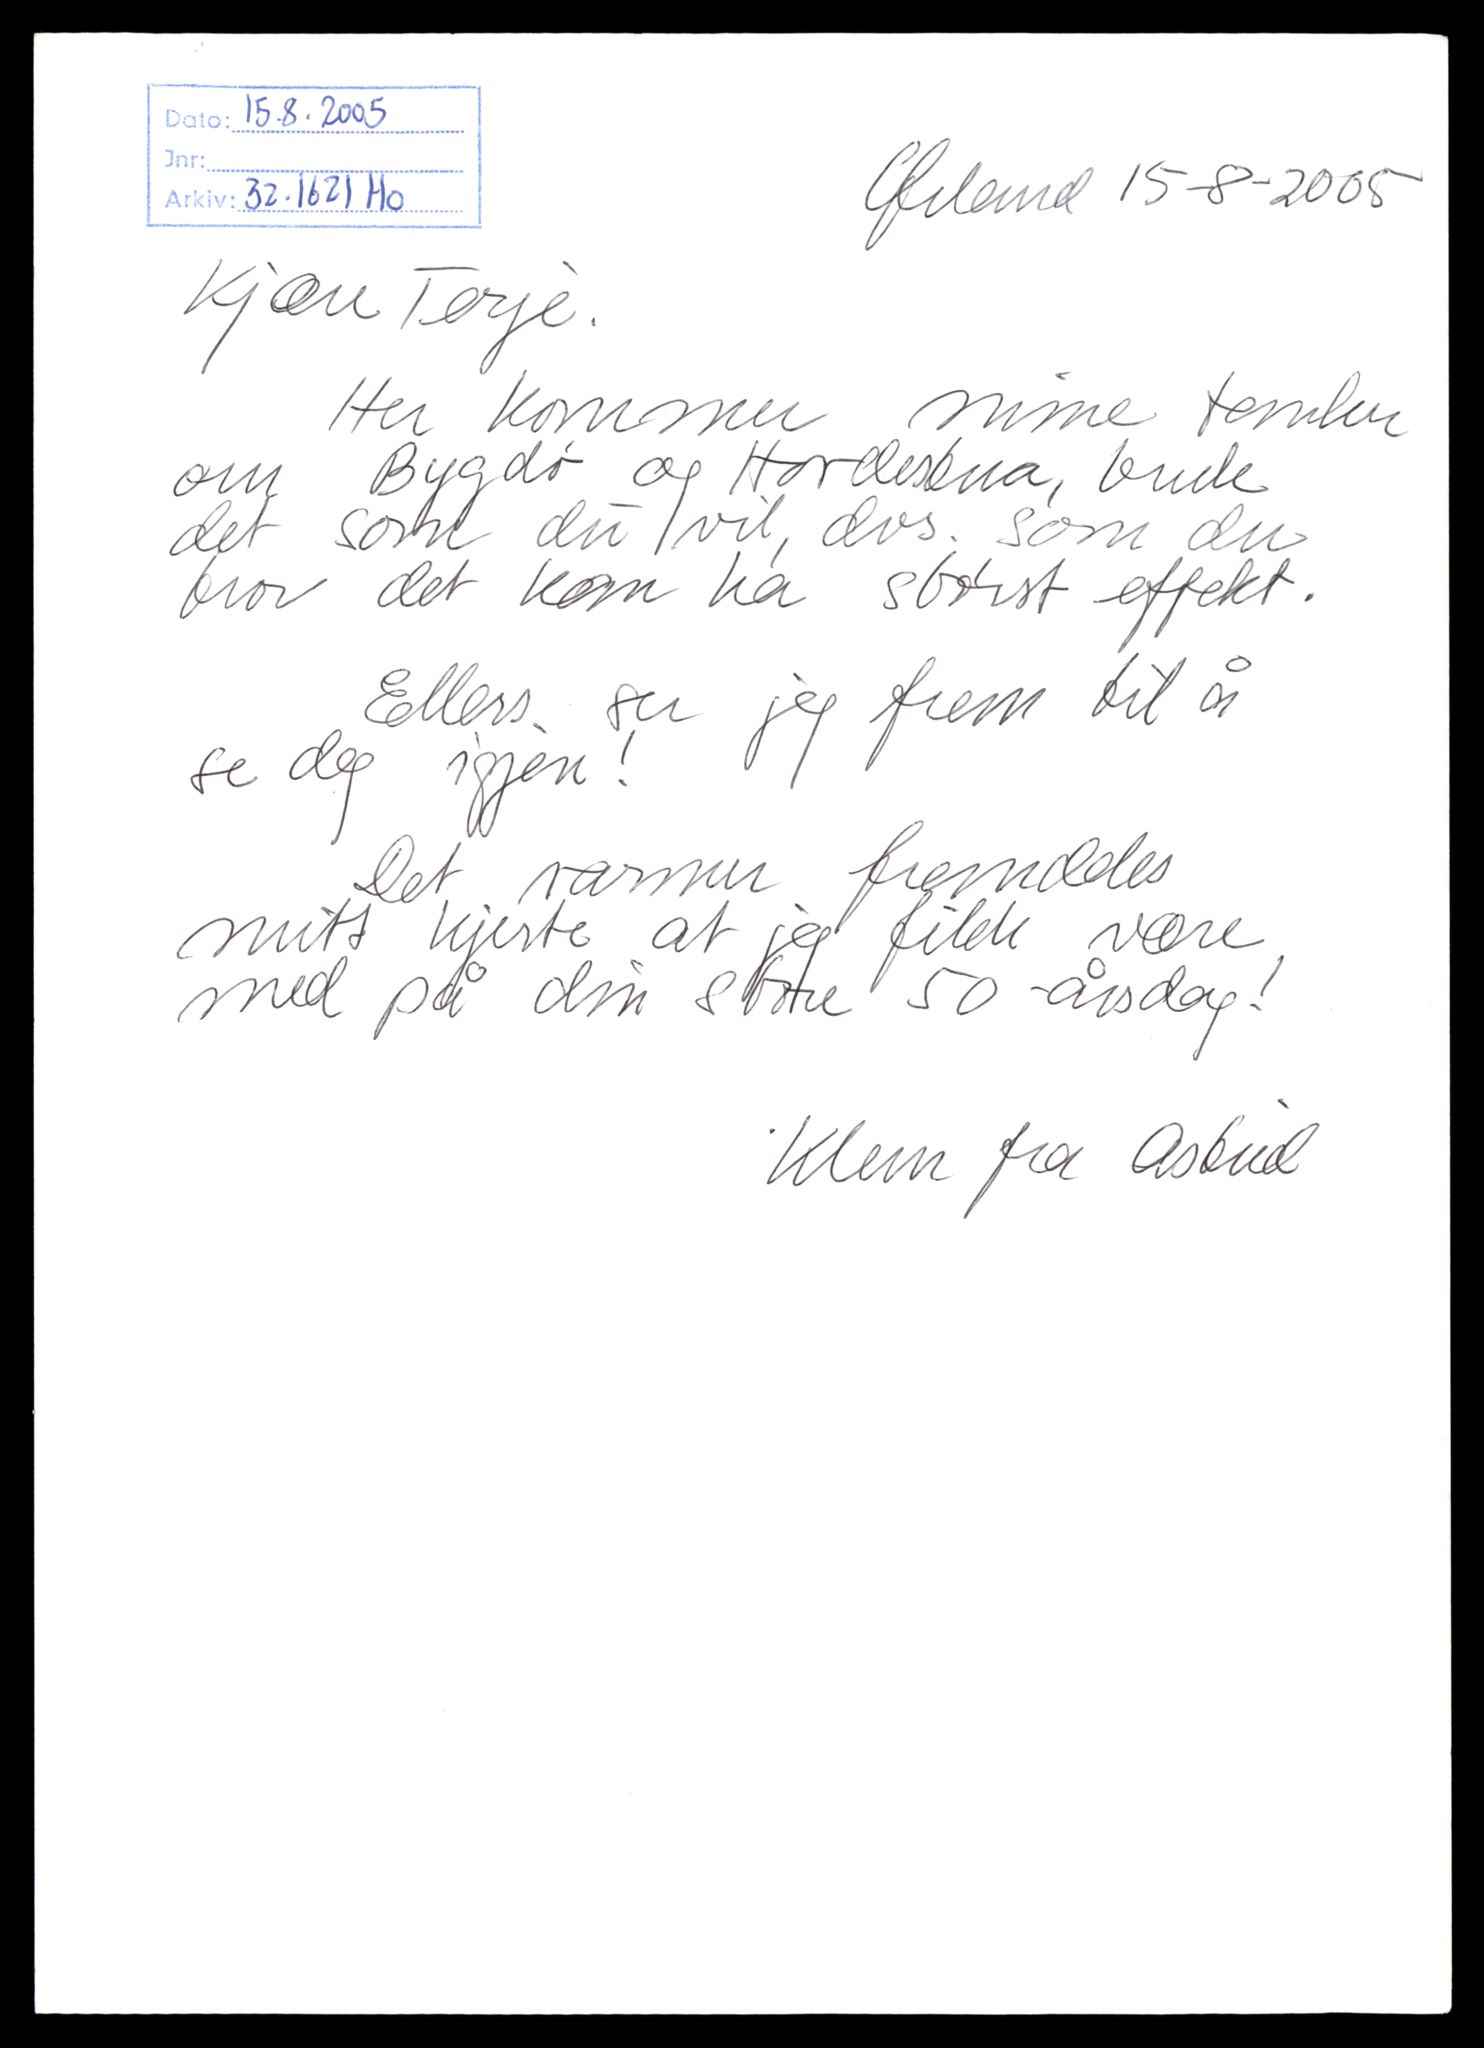 Dato: 15.8.2005
Jnr:
Arkiv: 32.1621 Ho
15-8-2005
Kjære Terje.
Her kommer mine tanker
om Bygdø og Hordestua, bruk
det som du vil, dvs. som du
tror det kan ha størst effekt.
Ellers ser jeg frem til å
se deg igjen!
Det varmer fremdeles
mitt hjerte at jeg fikk være
med på din store 50-årsdag!
Klem fra Astrid